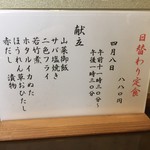 日替わり定食
八八〇円
四月八日
午前十一時三〇分〜
午後一時三〇分
献立
山菜御飯
サバ塩焼き
二色フライ
若竹煮
ホタルイカぬた
ほうれん草おひたし
漬物
赤だし